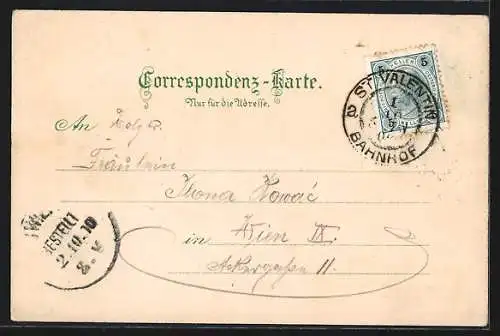 Correspondenz-Karte.
Nur für die Adresse.
5 5
ST. VALENTIN
BAHNHOF
An
Fräulein
Ilona Kovač
in Wien IX.
Ackergasse 11.
BESTELLT
2.10.10
8.V